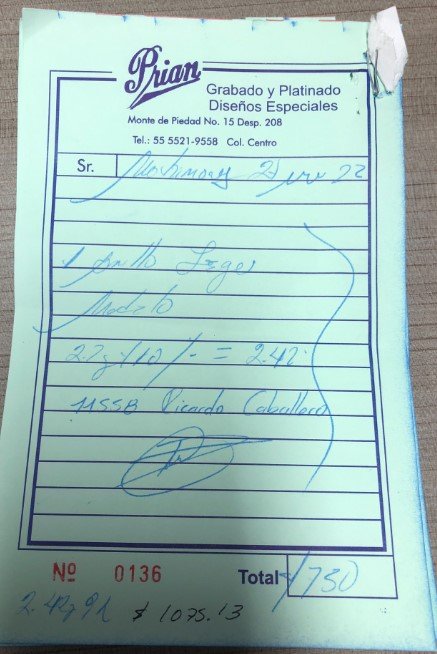 Prian
Grabado y Platinado
Diseños Especiales
Monte de Piedad No. 15 Desp. 208
Tel.: 55 5521-9558 Col. Centro
Sr. 22
1 Anillo
Modelo
= 2.42
Ricardo Caballero
Nº 0136 Total 730
$ 1075.13